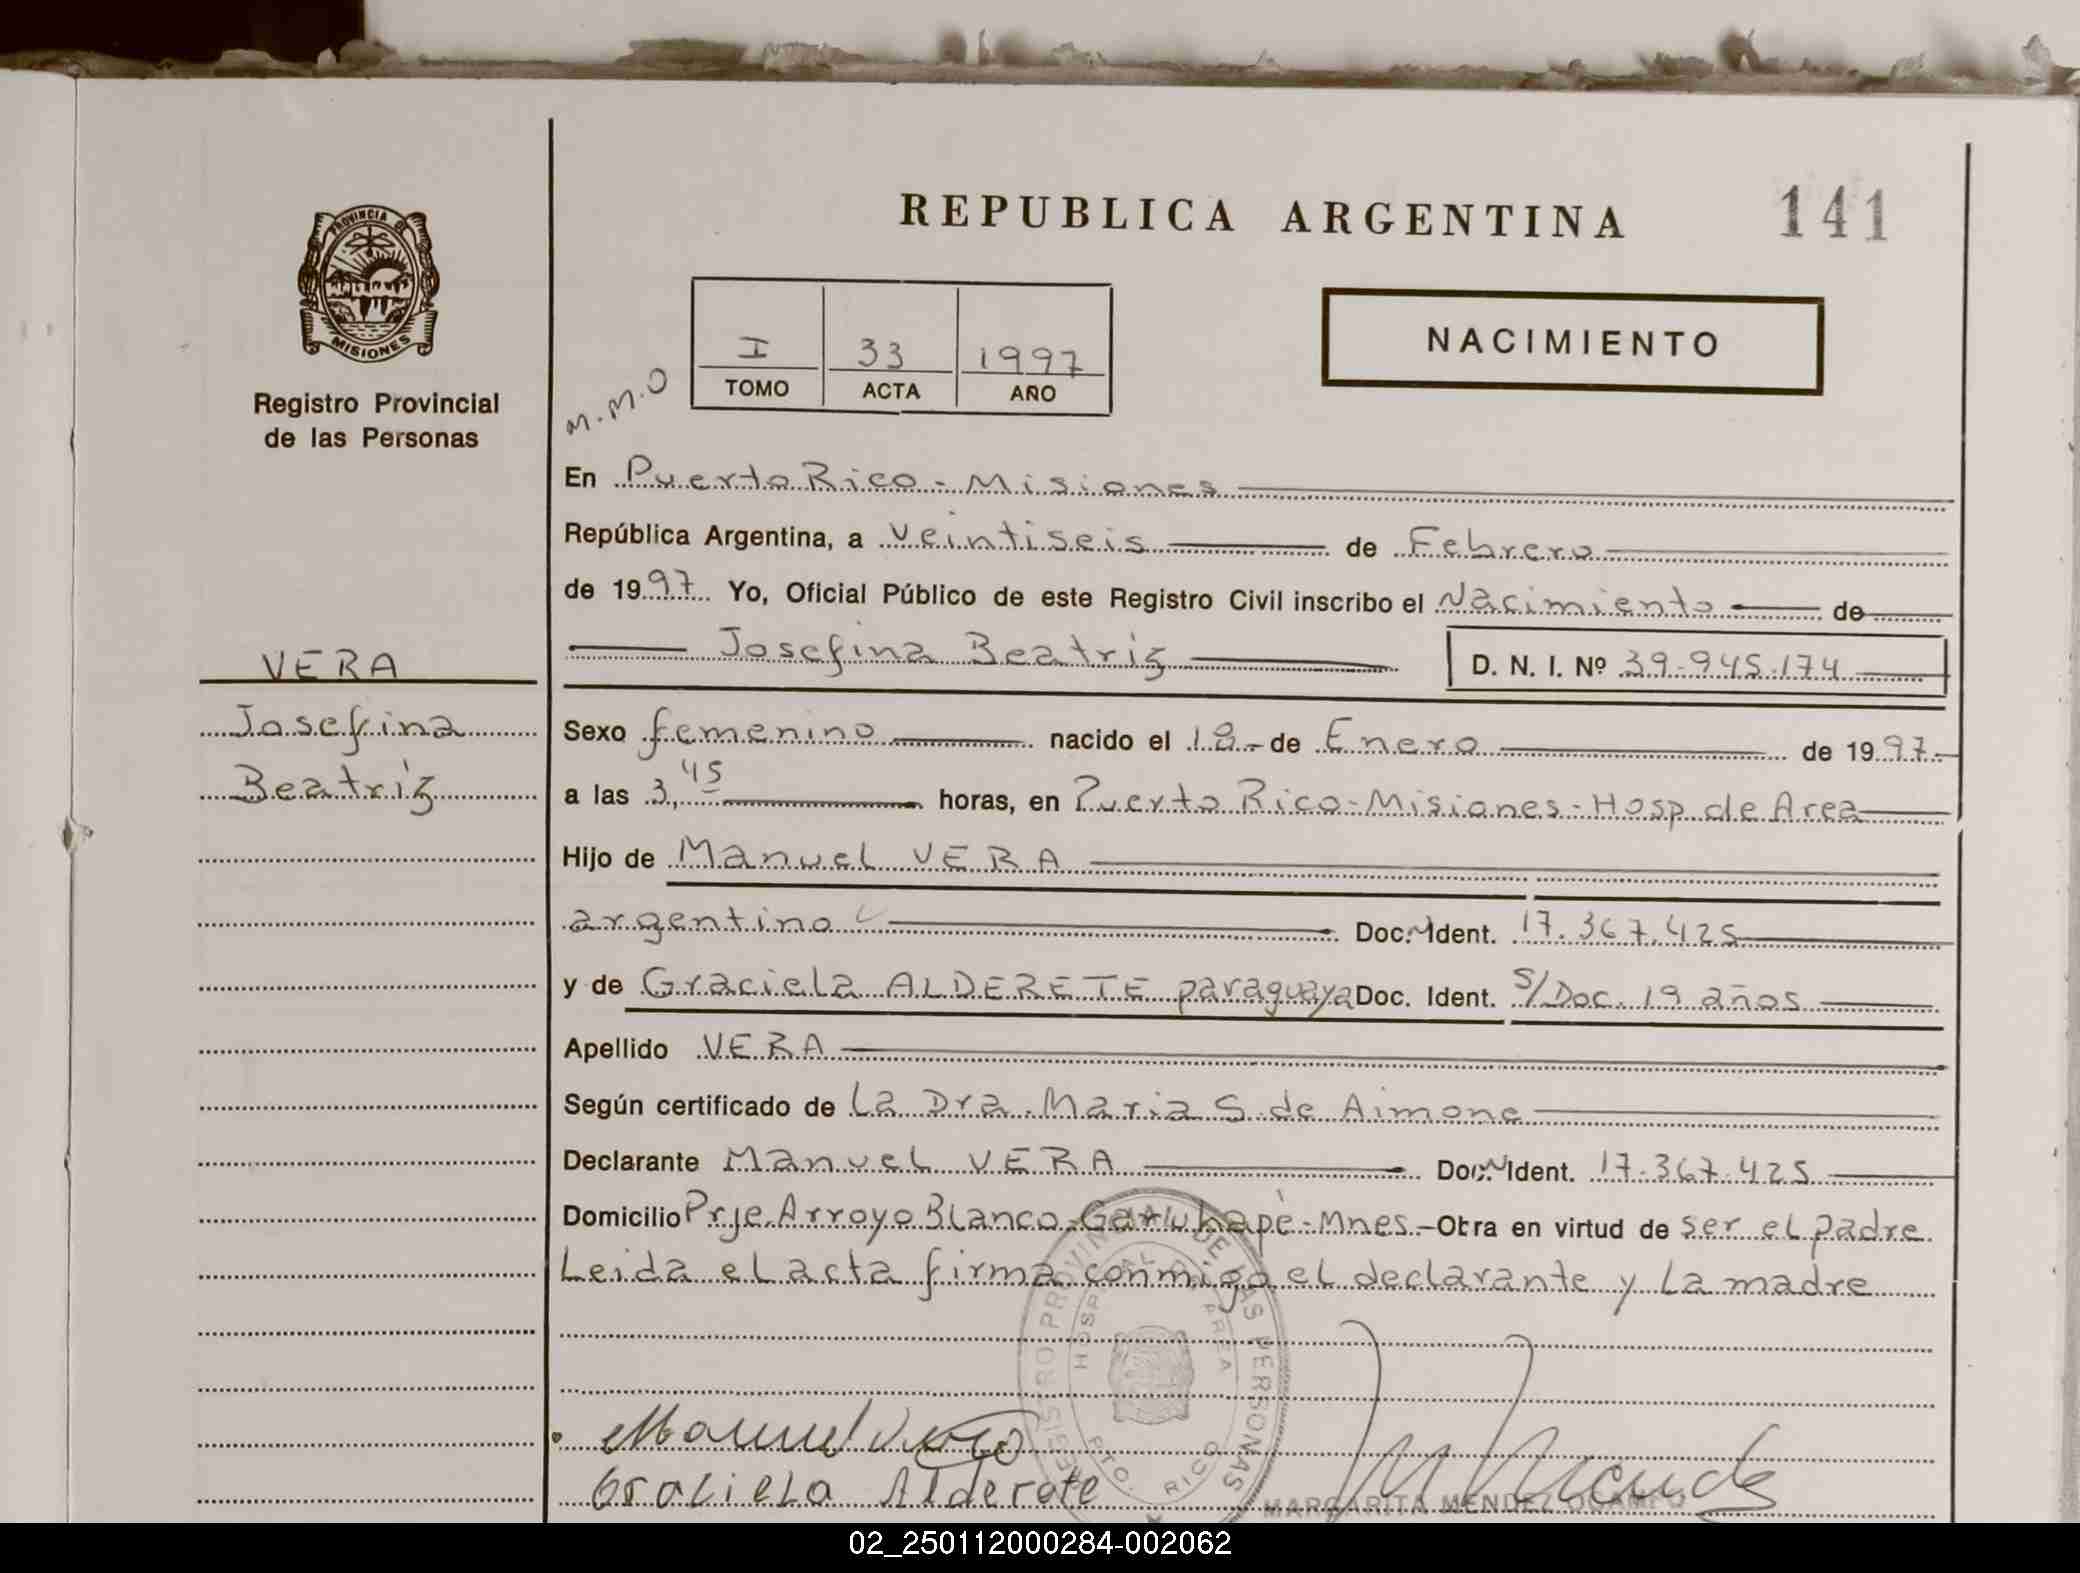 REPUBLICA ARGENTINA
141
PROVINCIA DE
MISIONES
Registro Provincial
de las Personas
NACIMIENTO
I 33 1997
TOMO ACTA AÑO
M.M.O
En Puerto Rico - Misiones
República Argentina, a veintiseis de Febrero
de 1997 Yo, Oficial Público de este Registro Civil inscribo el Nacimiento de
Josefina Beatriz D. N. I. Nº 39.945.174
VERA
Josefina
Beatriz
Sexo femenino nacido el 18 - de Enero de 1997
a las 3,45 horas, en Puerto Rico - Misiones - Hosp de Area
Hijo de Manuel VERA
argentino Doc. N Ident. 17.367.425
y de Graciela ALDERETE paraguaya Doc. Ident. S/Doc. 19 años
Apellido VERA
Según certificado de La Dra. Maria S. de Aimone
Declarante Manuel VERA Doc. N Ident. 17.367.425
Domicilio Prje. Arroyo Blanco - Garuhapè - Mnes. - Otra en virtud de ser el padre
Leida el acta firma conmigo el declarante y La madre
REGISTRO PROVINCIAL DE LAS PERSONAS
HOSPITAL DE AREA
PTO. RICO
Manuel Vera
Graciela Alderete
MARGARITA MENDEZ OCAMPO
02_250112000284-002062